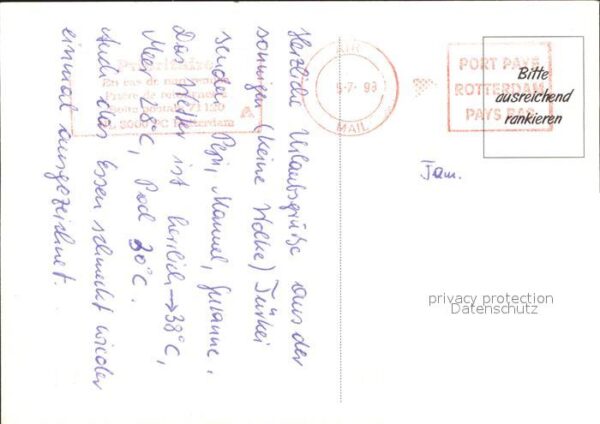 Herzliche Urlaubsgrüße aus der
sonnigen (keine Wolke) Türkei
senden Pepi, Manuel, Susanne.
Das Wetter ist herrlich → 38°C,
Meer 28°C, Pool 30°C.
Auch das Essen schmeckt wieder
einmal ausgezeichnet.
Prioritaire
En cas de non remise
Prière de retourner à
AIR
5-7-93
MAIL
PORT PAYÉ
ROTTERDAM
PAYS BAS
Bitte
ausreichend
frankieren
Fam.
privacy protection
Datenschutz